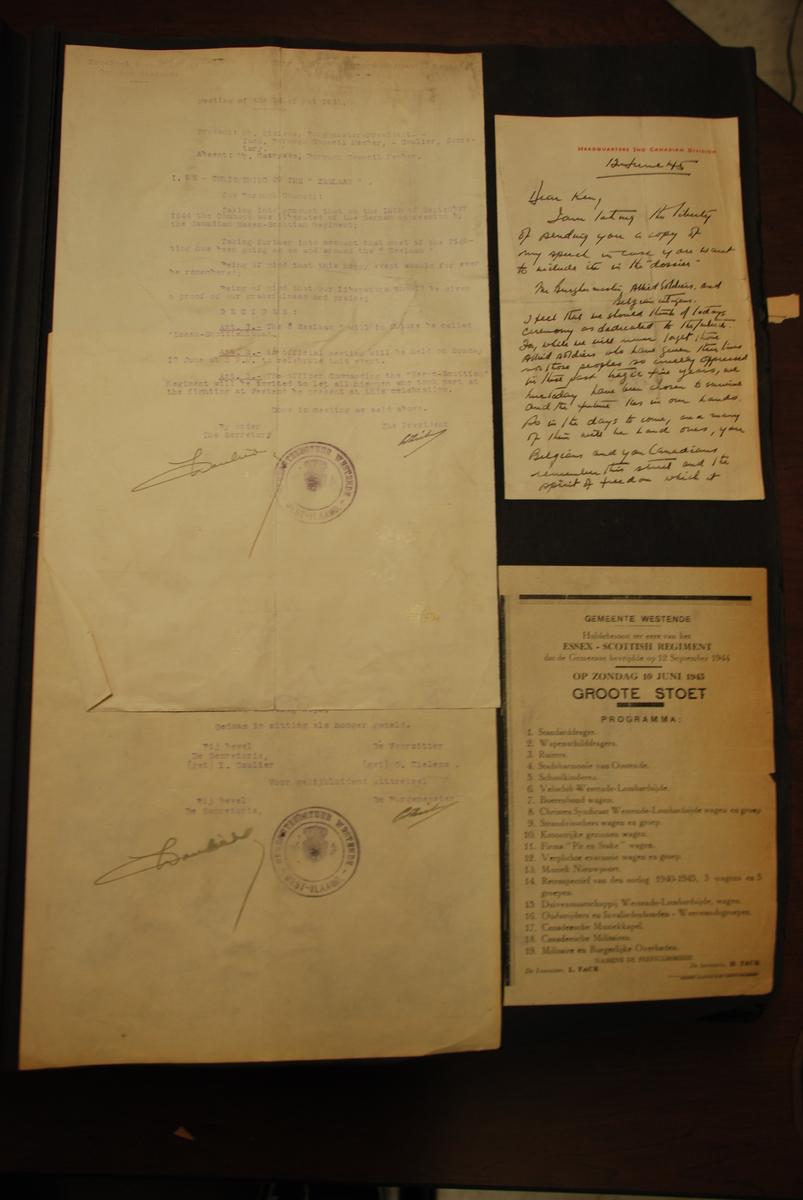 Meeting of the
Absent:
I. RE - CHRISTENING OF THE " ZEELAAN " .
The Borough Council;
Taking into account that on the 12th of September
1944 the Commune was liberated of the German oppression by
the Canadian Essex-Scottish Regiment;
Taking further into account that most of the figh-
ting has been going on on and around the " Zeelaan "
Being of mind that this happy event should for ever
be remembered;
Being of mind that our liberators should be given
a proof of our gratefulness and praise;
D E C I D E S :
Art. 1.- The " Zeelaan " will in future be called
Art. 2.- An official meeting will be held on Sunday
10 June at to celebrate this event.
Art. 3.- The Officer Commanding the "Essex-Scottish"
Regiment will be invited to let all his men who took part at
the fighting at Westend be present at this celebration.
Done in meeting as said above.
By order The President
The Secretary
GEMEENTEBESTUUR WESTENDE
WEST-VLAAND.
Gedaan in zitting als hooger gemeld.
Bij bevel De Voorzitter
De Secretaris,
(get) L. Saulier (get) G. Gielens .
Voor gelijkluidend uittreksel
Bij bevel De Burgemeester
De Secretaris,
GEMEENTEBESTUUR WESTENDE
WEST-VLAAND.
HEADQUARTERS 2ND CANADIAN DIVISION
12 June 45
Dear Ken,
I am taking the liberty
of sending you a copy of
my speech in case you want
to include it in the "dossier"
Mr Burghermaster, Allied Soldiers, and
Belgian citizens.
I feel that we should think of todays
ceremony as dedicated to the future.
For, while we will never forget those
Allied soldiers who have given their lives
nor those peoples so cruelly oppressed
in these past five years, we
here today have been chosen to survive
and the future lies in our hands.
So in the days to come, and many
of them will be hard ones, you
Belgians and you Canadians
remember this street and the
spirit of freedom which it
GEMEENTE WESTENDE
Huldebetoon ter eere van het
ESSEX - SCOTTISH REGIMENT
dat de Gemeente bevrijdde op 12 September 1944
OP ZONDAG 10 JUNI 1945
GROOTE STOET
PROGRAMMA:
1. Standaarddrager.
2. Wapenschilddragers.
3. Ruiters.
4. Stadsharmonie van Oostende.
5. Schoolkinderen.
6. Veloclub Westende-Lombardzijde.
7. Boerenbond wagen.
8. Christen Syndicaat Westende-Lombardzijde wagen en groep
9. Strandvisschers wagen en groep.
10. Kroostrijke gezinnen wagen.
11. Firma "Pie en Stake" wagen.
12. Verplichte evacuatie wagen en groep.
13. Muziek Nieuwpoort.
14. Retrospectief van den oorlog 1940-1945, 3 wagens en 5
groepen.
15. Duivenmaatschappij Westende-Lombardzijde, wagen.
16. Oudstrijders en Invaliedenbonden - Weerstandsgroepen.
17. Canadeesche Muziekkapel.
18. Canadeesche Militairen.
19. Militaire en Burgerlijke Overheden.
NAMENS DE FEESTCOMMISSIE
De L. TACK De H. TACK